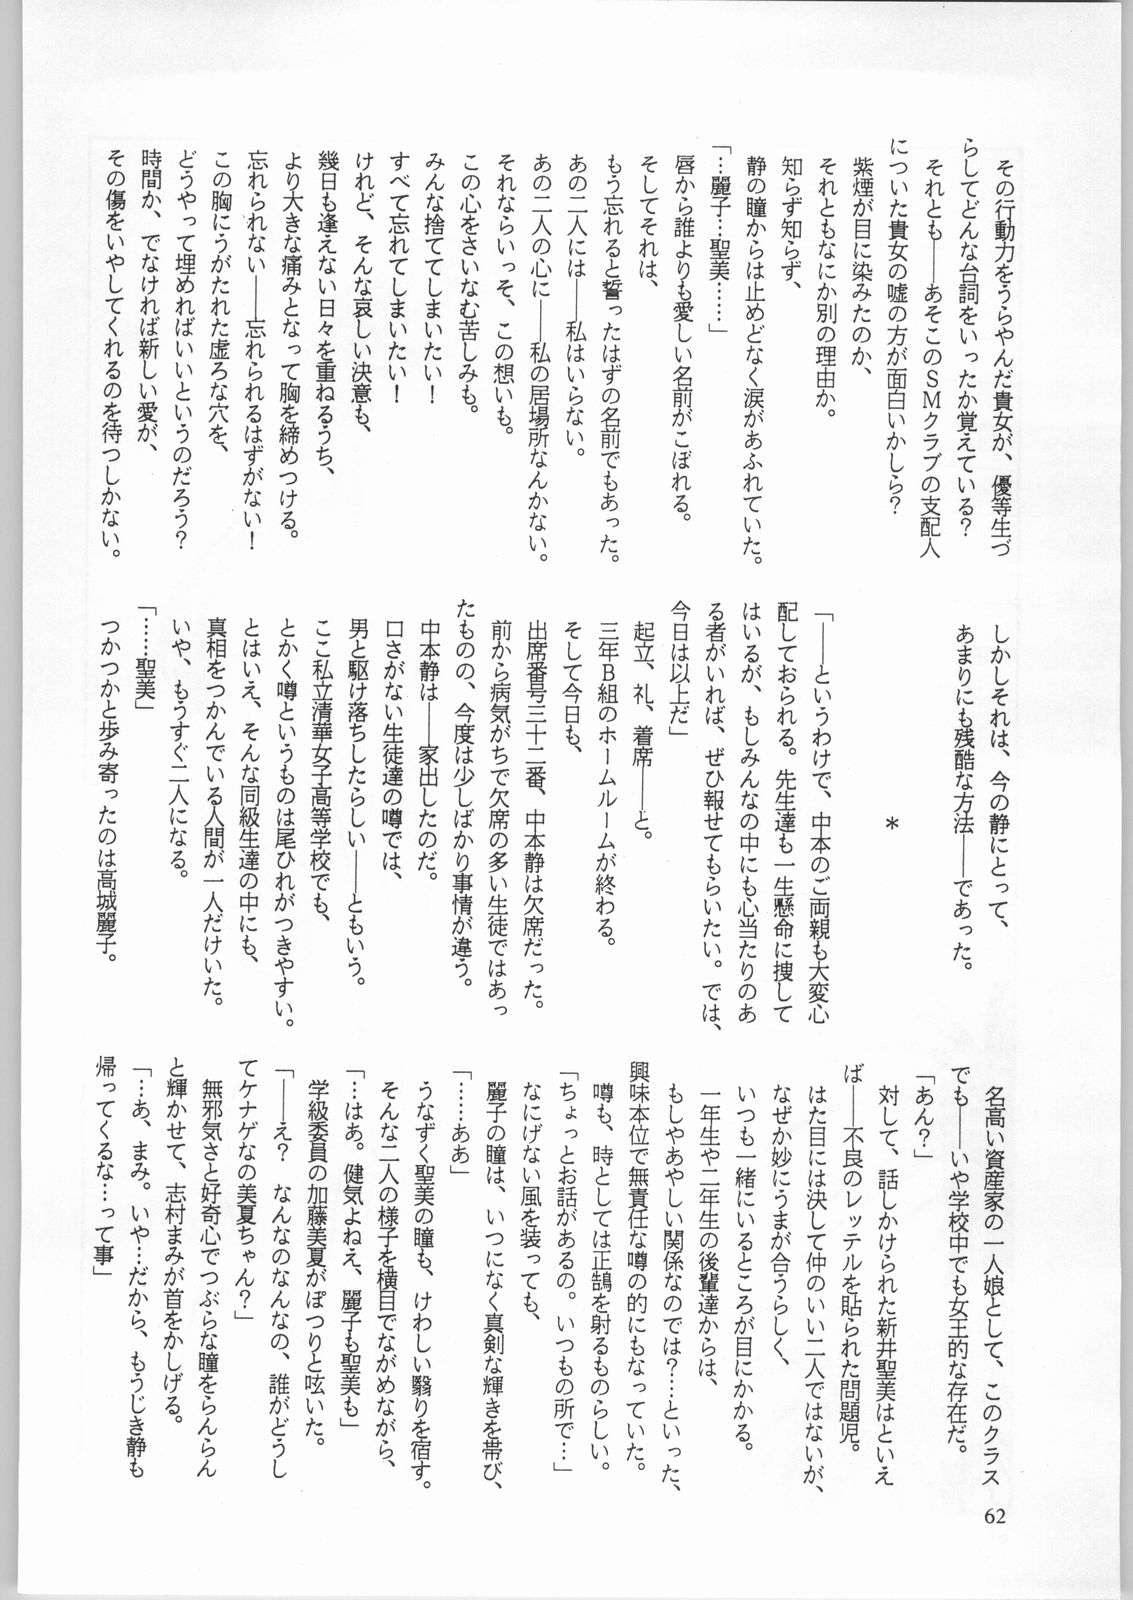 その行動力をうらやんだ貴女が、優等生づ
らしてどんな台詞をいったか覚えている？
それとも――あそこのＳＭクラブの支配人
についた貴女の嘘の方が面白いかしら？
紫煙が目に染みたのか、
それともなにか別の理由か。
知らず知らず、
静の瞳からは止めどなく涙があふれていた。
「…麗子…聖美……」
唇から誰よりも愛しい名前がこぼれる。
そしてそれは、
もう忘れると誓ったはずの名前でもあった。
あの二人には――私はいらない。
あの二人の心に――私の居場所なんかない。
それならいっそ、この想いも。
この心をさいなむ苦しみも。
みんな捨ててしまいたい！
すべて忘れてしまいたい！
けれど、そんな哀しい決意も、
幾日も逢えない日々を重ねるうち、
より大きな痛みとなって胸を締めつける。
忘れられない――忘れられるはずがない！
この胸にうがたれた虚ろな穴を、
どうやって埋めればいいというのだろう？
時間か、でなければ新しい愛が、
その傷をいやしてくれるのを待つしかない。
しかしそれは、今の静にとって、
あまりにも残酷な方法――であった。
＊
「――というわけで、中本のご両親も大変心
配しておられる。先生達も一生懸命に捜して
はいるが、もしみんなの中にも心当たりのあ
る者がいれば、ぜひ報せてもらいたい。では、
今日は以上だ」
起立、礼、着席――と。
三年Ｂ組のホームルームが終わる。
そして今日も、
出席番号三十二番、中本静は欠席だった。
前から病気がちで欠席の多い生徒ではあっ
たものの、今度は少しばかり事情が違う。
中本静は――家出したのだ。
口さがない生徒達の噂では、
男と駆け落ちしたらしい――ともいう。
ここ私立清華女子高等学校でも、
とかく噂というものは尾ひれがつきやすい。
とはいえ、そんな同級生達の中にも、
真相をつかんでいる人間が一人だけいた。
いや、もうすぐ二人になる。
「……聖美」
つかつかと歩み寄ったのは高城麗子。
名高い資産家の一人娘として、このクラス
でも――いや学校中でも女王的な存在だ。
「あん？」
対して、話しかけられた新井聖美はといえ
ば――不良のレッテルを貼られた問題児。
はた目には決して仲のいい二人ではないが、
なぜか妙にうまが合うらしく、
いつも一緒にいるところが目にかかる。
一年生や二年生の後輩達からは、
もしやあやしい関係なのでは？…といった、
興味本位で無責任な噂の的にもなっていた。
噂も、時としては正鵠を射るものらしい。
「ちょっとお話があるの。いつもの所で…」
なにげない風を装っても、
麗子の瞳は、いつになく真剣な輝きを帯び、
「……ああ」
うなずく聖美の瞳も、けわしい翳りを宿す。
そんな二人の様子を横目でながめながら、
「…はあ。健気よねえ、麗子も聖美も」
学級委員の加藤美夏がぽつりと呟いた。
「――え？　なんなのなんなの、誰がどうし
てケナゲなの美夏ちゃん？」
無邪気さと好奇心でつぶらな瞳をらんらん
と輝かせて、志村まみが首をかしげる。
「…あ、まみ。いや…だから、もうじき静も
帰ってくるな…って事」
62